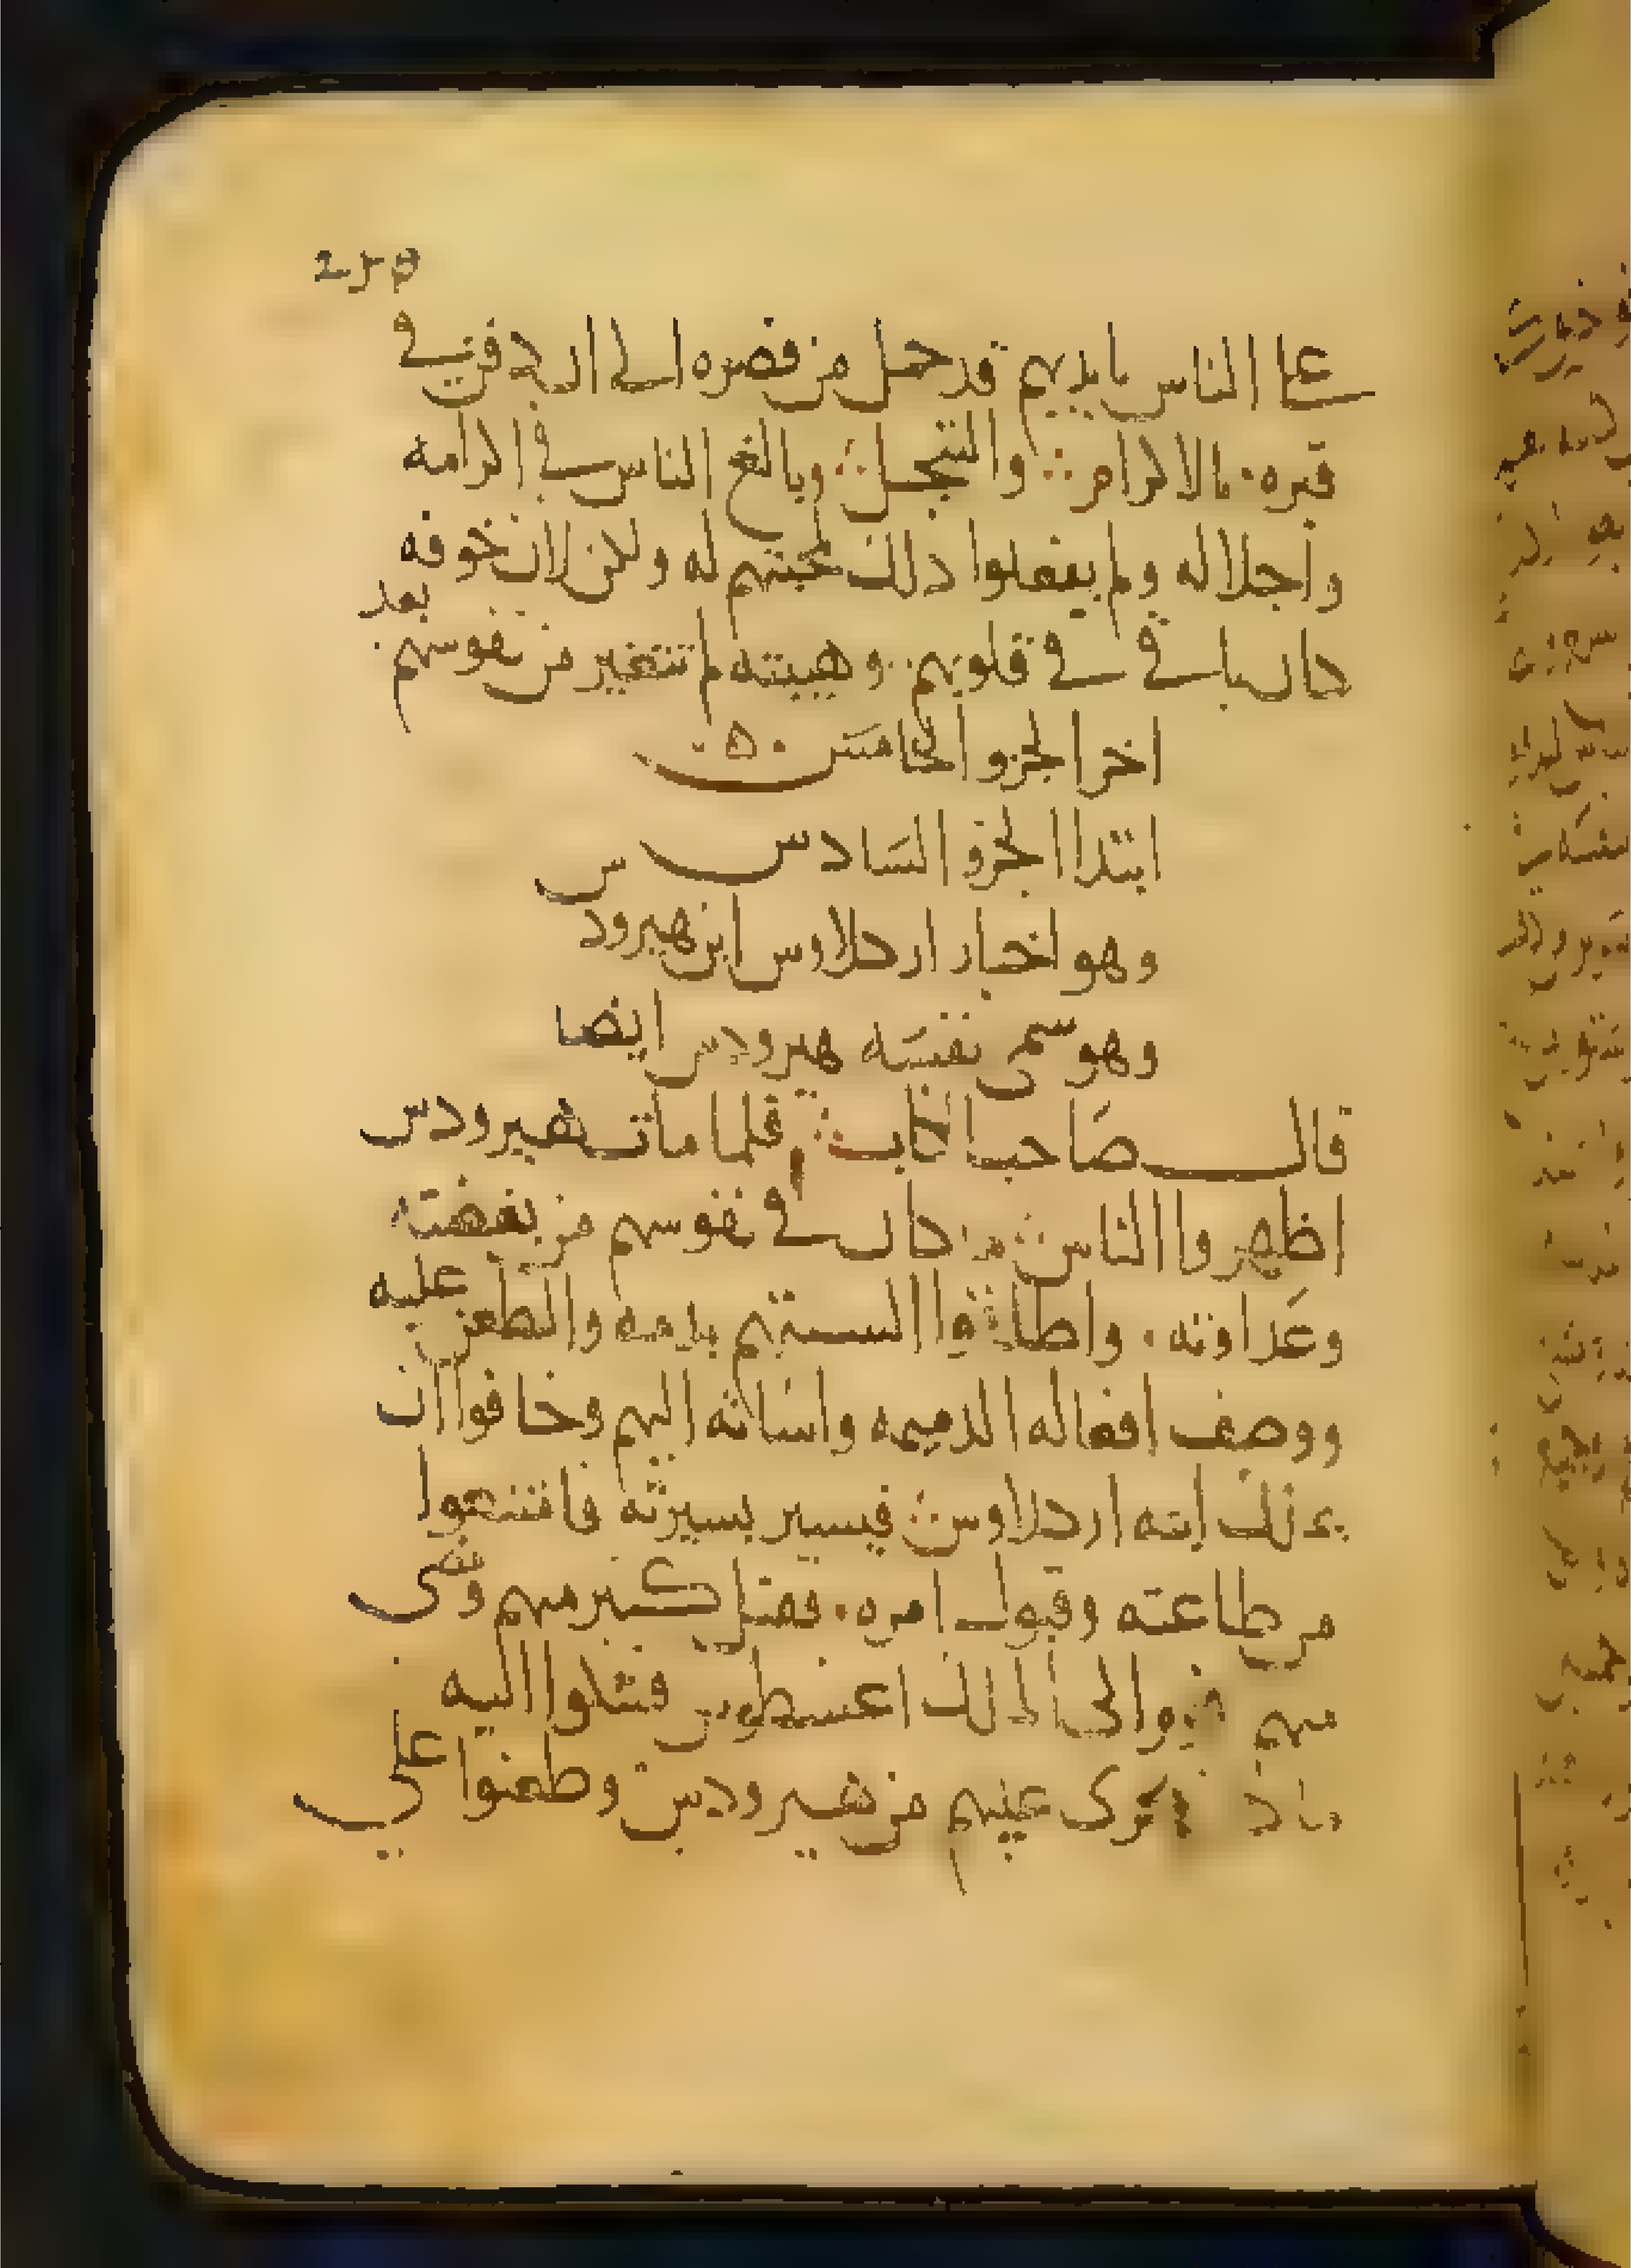 علي الناس بايديهم قد حمل من قصره الي الـ فيه في
قبره بالاكرام والتبجيل وبالغ الناس في اكرامه
واجلاله ولم يفعلوا ذلك لمحبتهم له ولكن لان خوفه
كان باقي في قلوبهم وهيبته لم تتغير من نفوسهم بعد
اخر الجزو الخامس ٥
ابتدا الجزو السادس س
وهو اخبار اركلاوس ابن هيرود
وهو سمى نفسه هيرودس ايضا
قال صاحب الكتاب فلما مات هيرودس
اظهروا الناس ما كان في نفوسهم من بغضته
وعداوته واطلقوا السنتهم بذمه والطعن عليه
ووصف افعاله الذميمه واساته اليهم وخافوا ان
يملك ابنه اركلاوس فيسير بسيرته فامتنعوا
من طاعته وقبول امره فقتل كثير منهم ومضى
منهم الى الملك اغسطوس فشكوا اليه
ما جرى عليهم من هيرودس وطعنوا علي